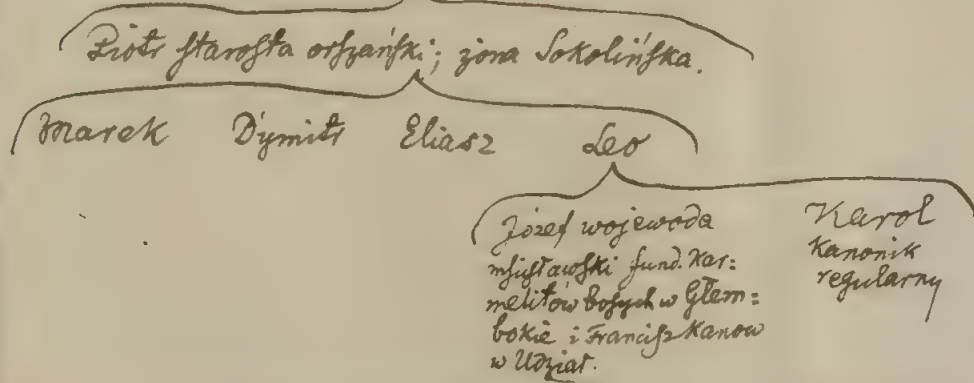 Piotr starosta orszański; żona Sokolińska.
Marek Dymitr Eliasz Leo
Józef wojewoda
mścisławski fund. Kar=
melitów bosych w Głem=
bokie i Franciszkanow
w Udział.
Karol
Kanonik
regularny